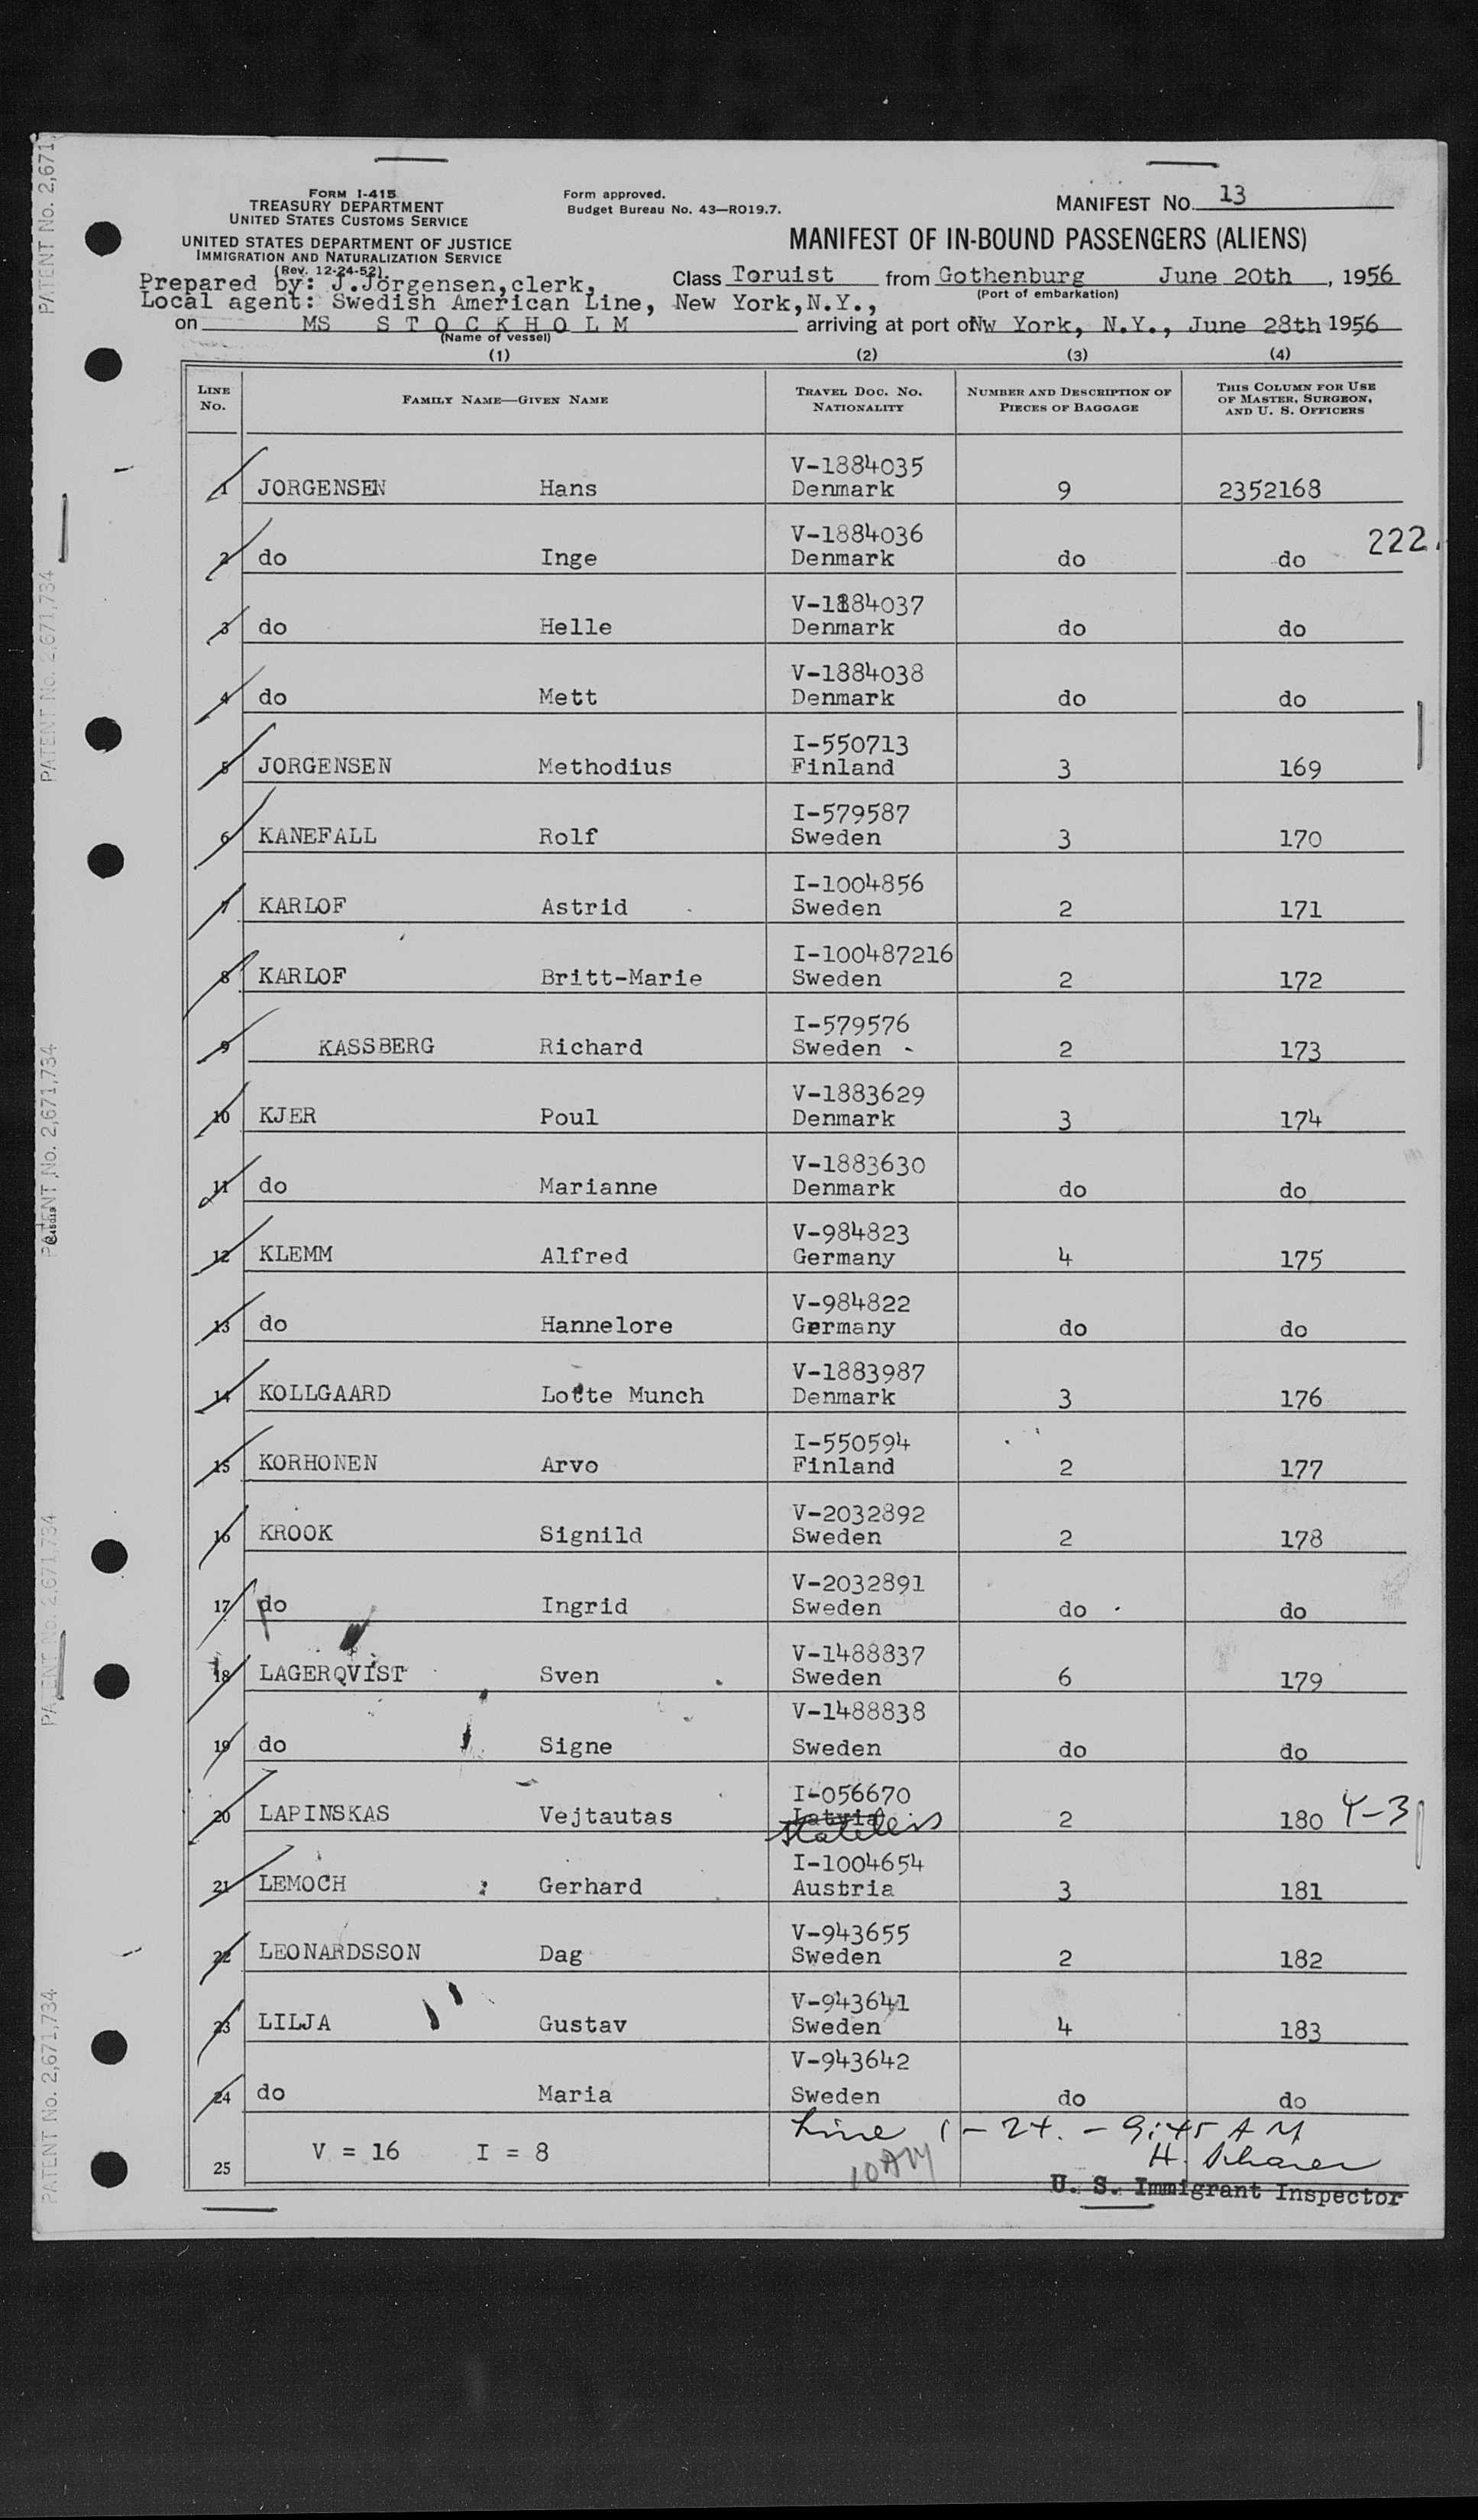 FORM I-415
TREASURY DEPARTMENT
UNITED STATES CUSTOMS SERVICE
Form approved.
Budget Bureau No. 43—RO19.7.
MANIFEST No. 13
UNITED STATES DEPARTMENT OF JUSTICE
IMMIGRATION AND NATURALIZATION SERVICE
(Rev. 12-24-52)
MANIFEST OF IN-BOUND PASSENGERS (ALIENS)
Prepared by: J.Jörgensen,clerk,
Class Toruist from Gothenburg June 20th, 1956
(Port of embarkation)
Local agent: Swedish American Line, New York,N.Y.,
on MS S T O C K H O L M arriving at port of Nw York, N.Y., June 28th 1956
(Name of vessel)
(1) (2) (3) (4)
LINE No. FAMILY NAME—GIVEN NAME TRAVEL DOC. NO. NATIONALITY NUMBER AND DESCRIPTION OF PIECES OF BAGGAGE THIS COLUMN FOR USE OF MASTER, SURGEON, AND U. S. OFFICERS
V-1884035
1 JORGENSEN Hans Denmark 9 2352168
V-1884036 222
2 do Inge Denmark do do
V-1884037
3 do Helle Denmark do do
V-1884038
4 do Mett Denmark do do
I-550713
5 JORGENSEN Methodius Finland 3 169
I-579587
6 KANEFALL Rolf Sweden 3 170
I-1004856
7 KARLOF Astrid Sweden 2 171
I-100487216
8 KARLOF Britt-Marie Sweden 2 172
I-579576
9 KASSBERG Richard Sweden 2 173
V-1883629
10 KJER Poul Denmark 3 174
V-1883630
11 do Marianne Denmark do do
V-984823
12 KLEMM Alfred Germany 4 175
V-984822
13 do Hannelore Germany do do
V-1883987
14 KOLLGAARD Lotte Munch Denmark 3 176
I-550594
15 KORHONEN Arvo Finland 2 177
V-2032892
16 KROOK Signild Sweden 2 178
V-2032891
17 do Ingrid Sweden do do
V-1488837
18 LAGERQVIST Sven Sweden 6 179
V-1488838
19 do Signe Sweden do do
I-056670
20 LAPINSKAS Vejtautas Latvia 2 180 4-3
stateless
I-1004654
21 LEMOCH Gerhard Austria 3 181
V-943655
22 LEONARDSSON Dag Sweden 2 182
V-943641
23 LILJA Gustav Sweden 4 183
V-943642
24 do Maria Sweden do do
Line 1 - 24. - 9:45 AM
25 V = 16 I = 8 10 AM H.
U. S. Immigrant Inspector
PATENT No. 2,671
PATENT No. 2,671,734
PATENT No. 2,671,734
PATENT No. 2,671,734
PATENT No. 2,671,734